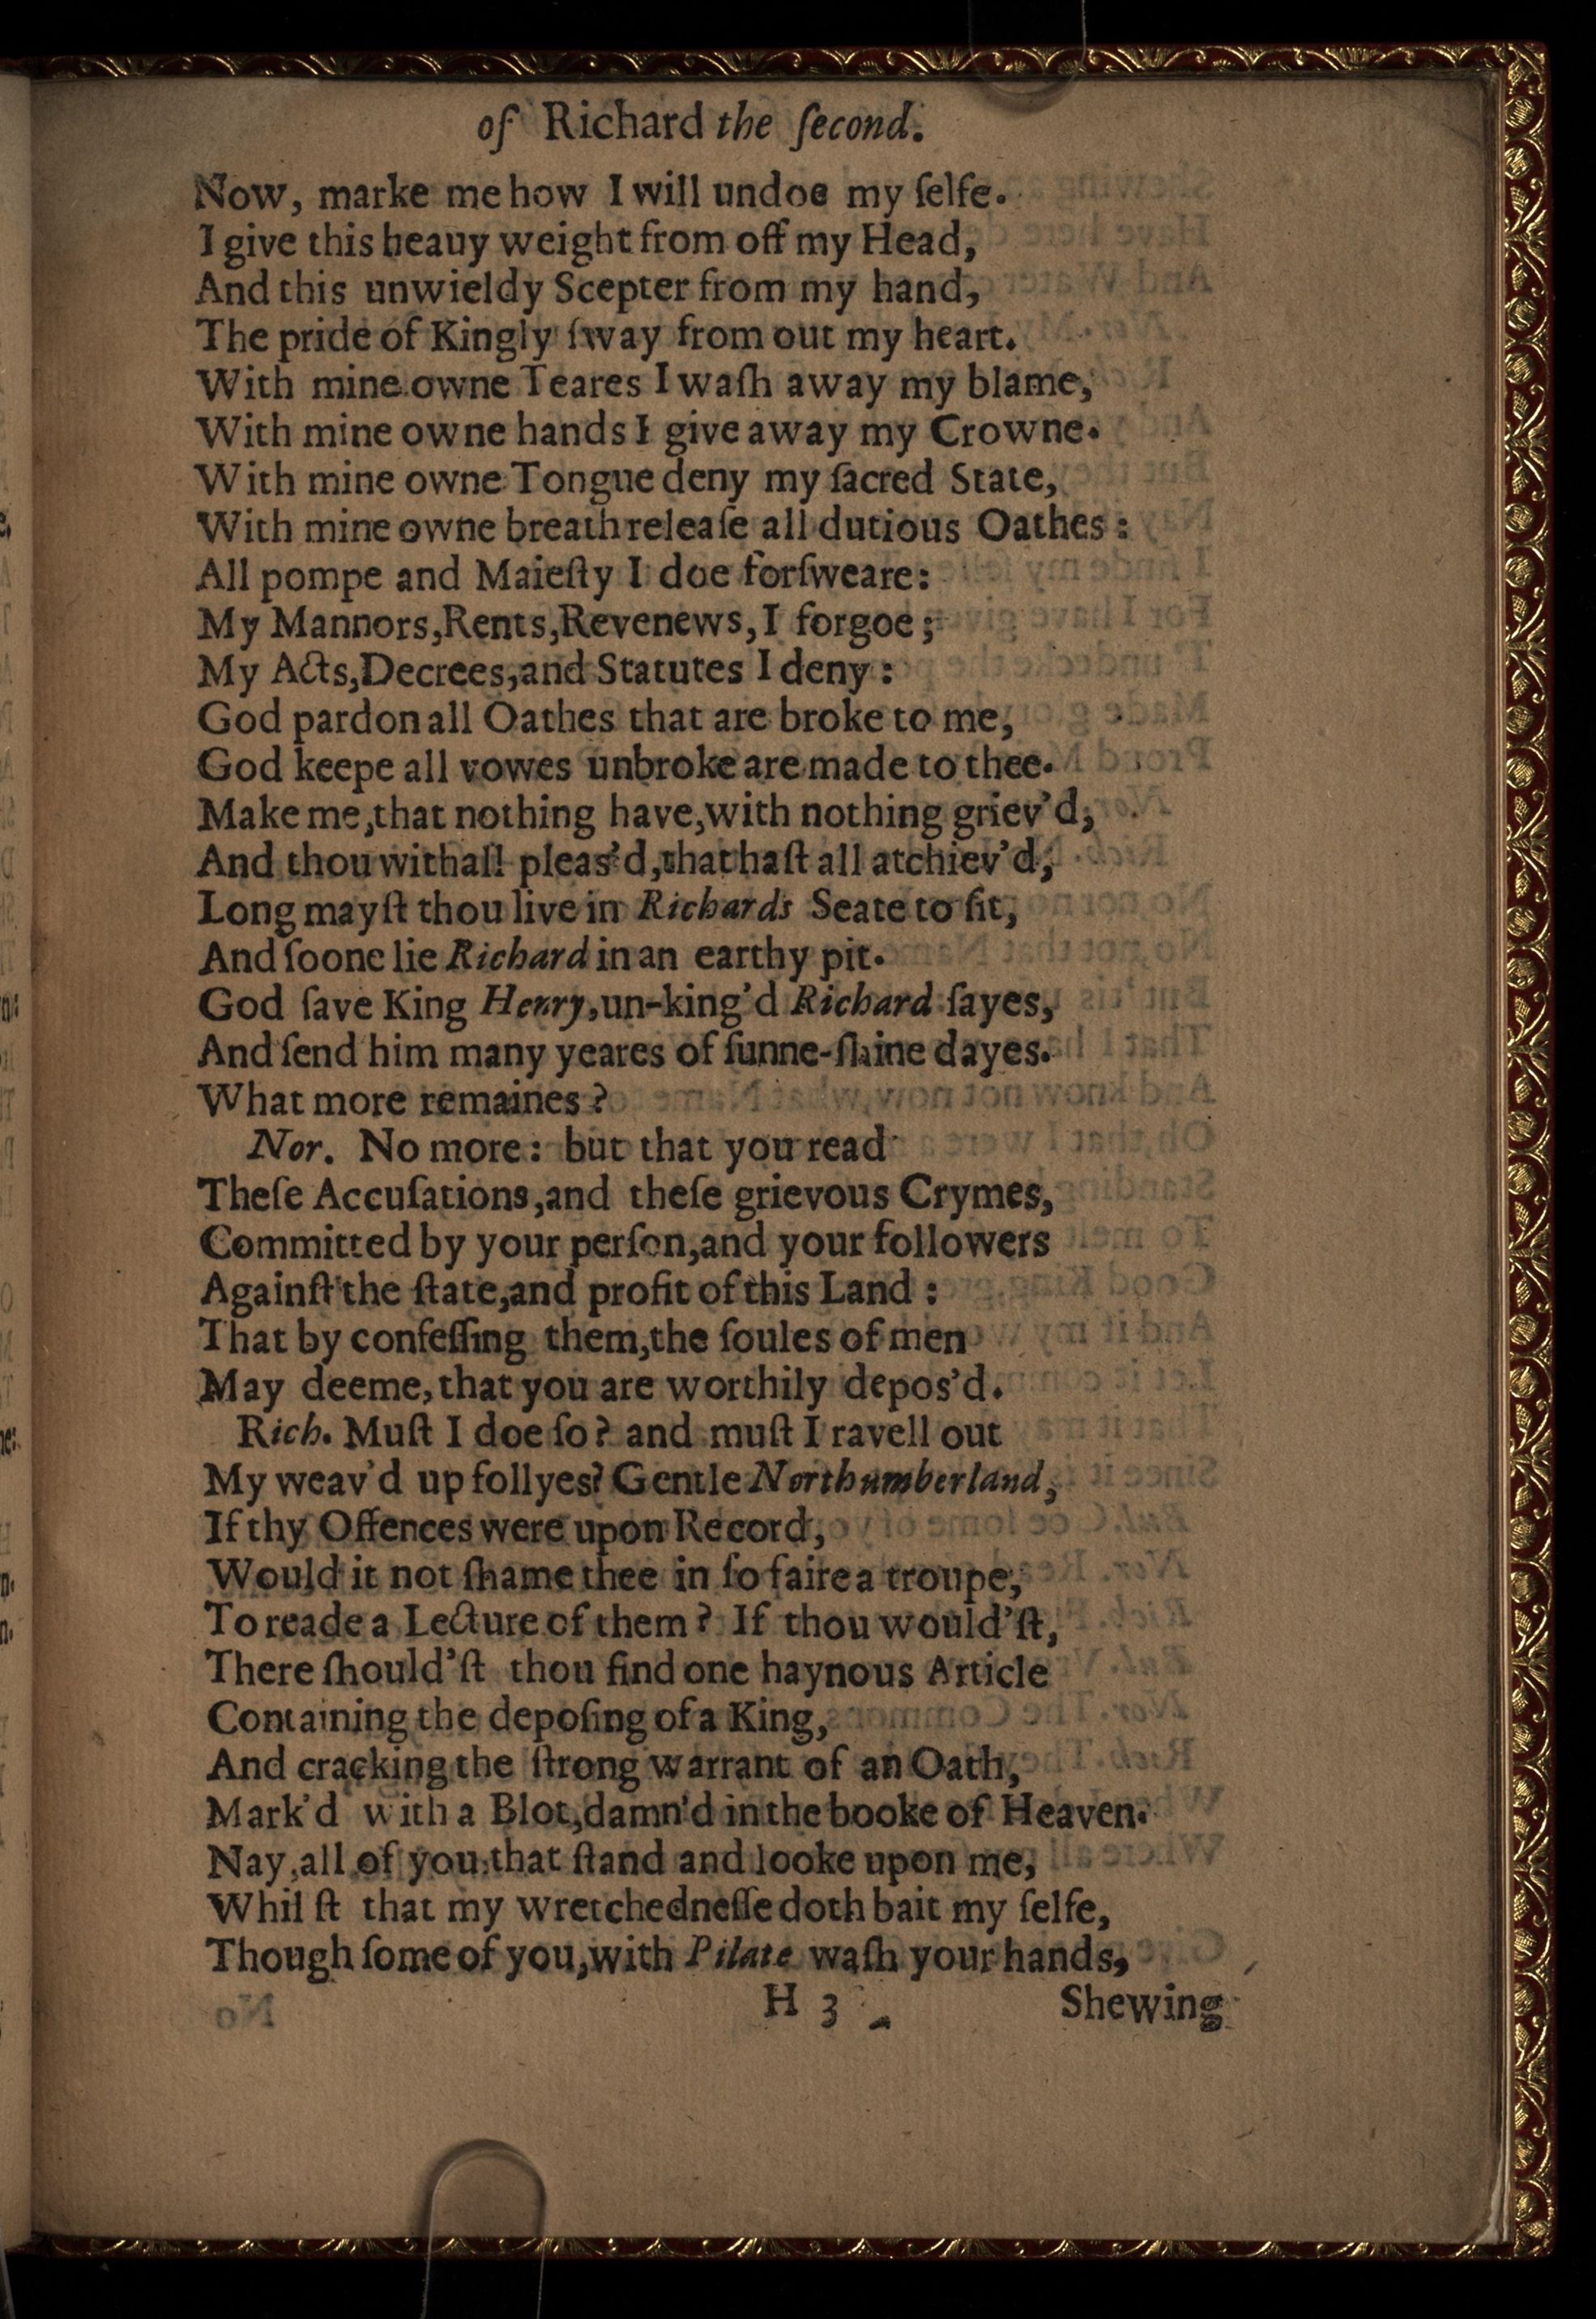 of Richard the ſecond.
Now, marke me how I will undoe my ſelfe.
I give this heauy weight from off my Head,
And this unwieldy Scepter from my hand,
The pride of Kingly ſway from out my heart.
With mine owne Teares I waſh away my blame,
With mine owne hands I give away my Crowne.
With mine owne Tongue deny my ſacred State,
With mine owne breath releaſe all dutious Oathes:
All pompe and Maieſty I doe forſweare:
My Mannors,Rents,Revenews,I forgoe;
My Acts,Decrees,and Statutes I deny:
God pardon all Oathes that are broke to me,
God keepe all vowes unbroke are made to thee.
Make me,that nothing have,with nothing griev'd,
And thou withall pleas'd,that haſt all atchiev'd,
Long mayſt thou live in Richards Seate to ſit,
And ſoone lie Richard in an earthy pit.
God ſave King Henry,un-king'd Richard ſayes,
And ſend him many yeares of ſunne-ſhine dayes.
What more remaines?
Nor. No more: but that you read
Theſe Accuſations,and theſe grievous Crymes,
Committed by your perſon,and your followers
Againſt the ſtate,and profit of this Land:
That by confeſſing them,the ſoules of men
May deeme, that you are worthily depos'd.
Rich. Muſt I doe ſo? and muſt I ravell out
My weav'd up follyes? Gentle Northumberland,
If thy Offences were upon Record,
Would it not ſhame thee in ſo faire a troupe,
To reade a Lecture of them? If thou would'ſt,
There ſhould'ſt thou find one haynous Article
Containing the depoſing of a King,
And cracking the ſtrong warrant of an Oath,
Mark'd with a Blot,damn'd in the booke of Heaven.
Nay,all of you,that ſtand and looke upon me,
Whilſt that my wretchedneſſe doth bait my ſelfe,
Though ſome of you,with Pilate waſh your hands,
H 3 Shewing